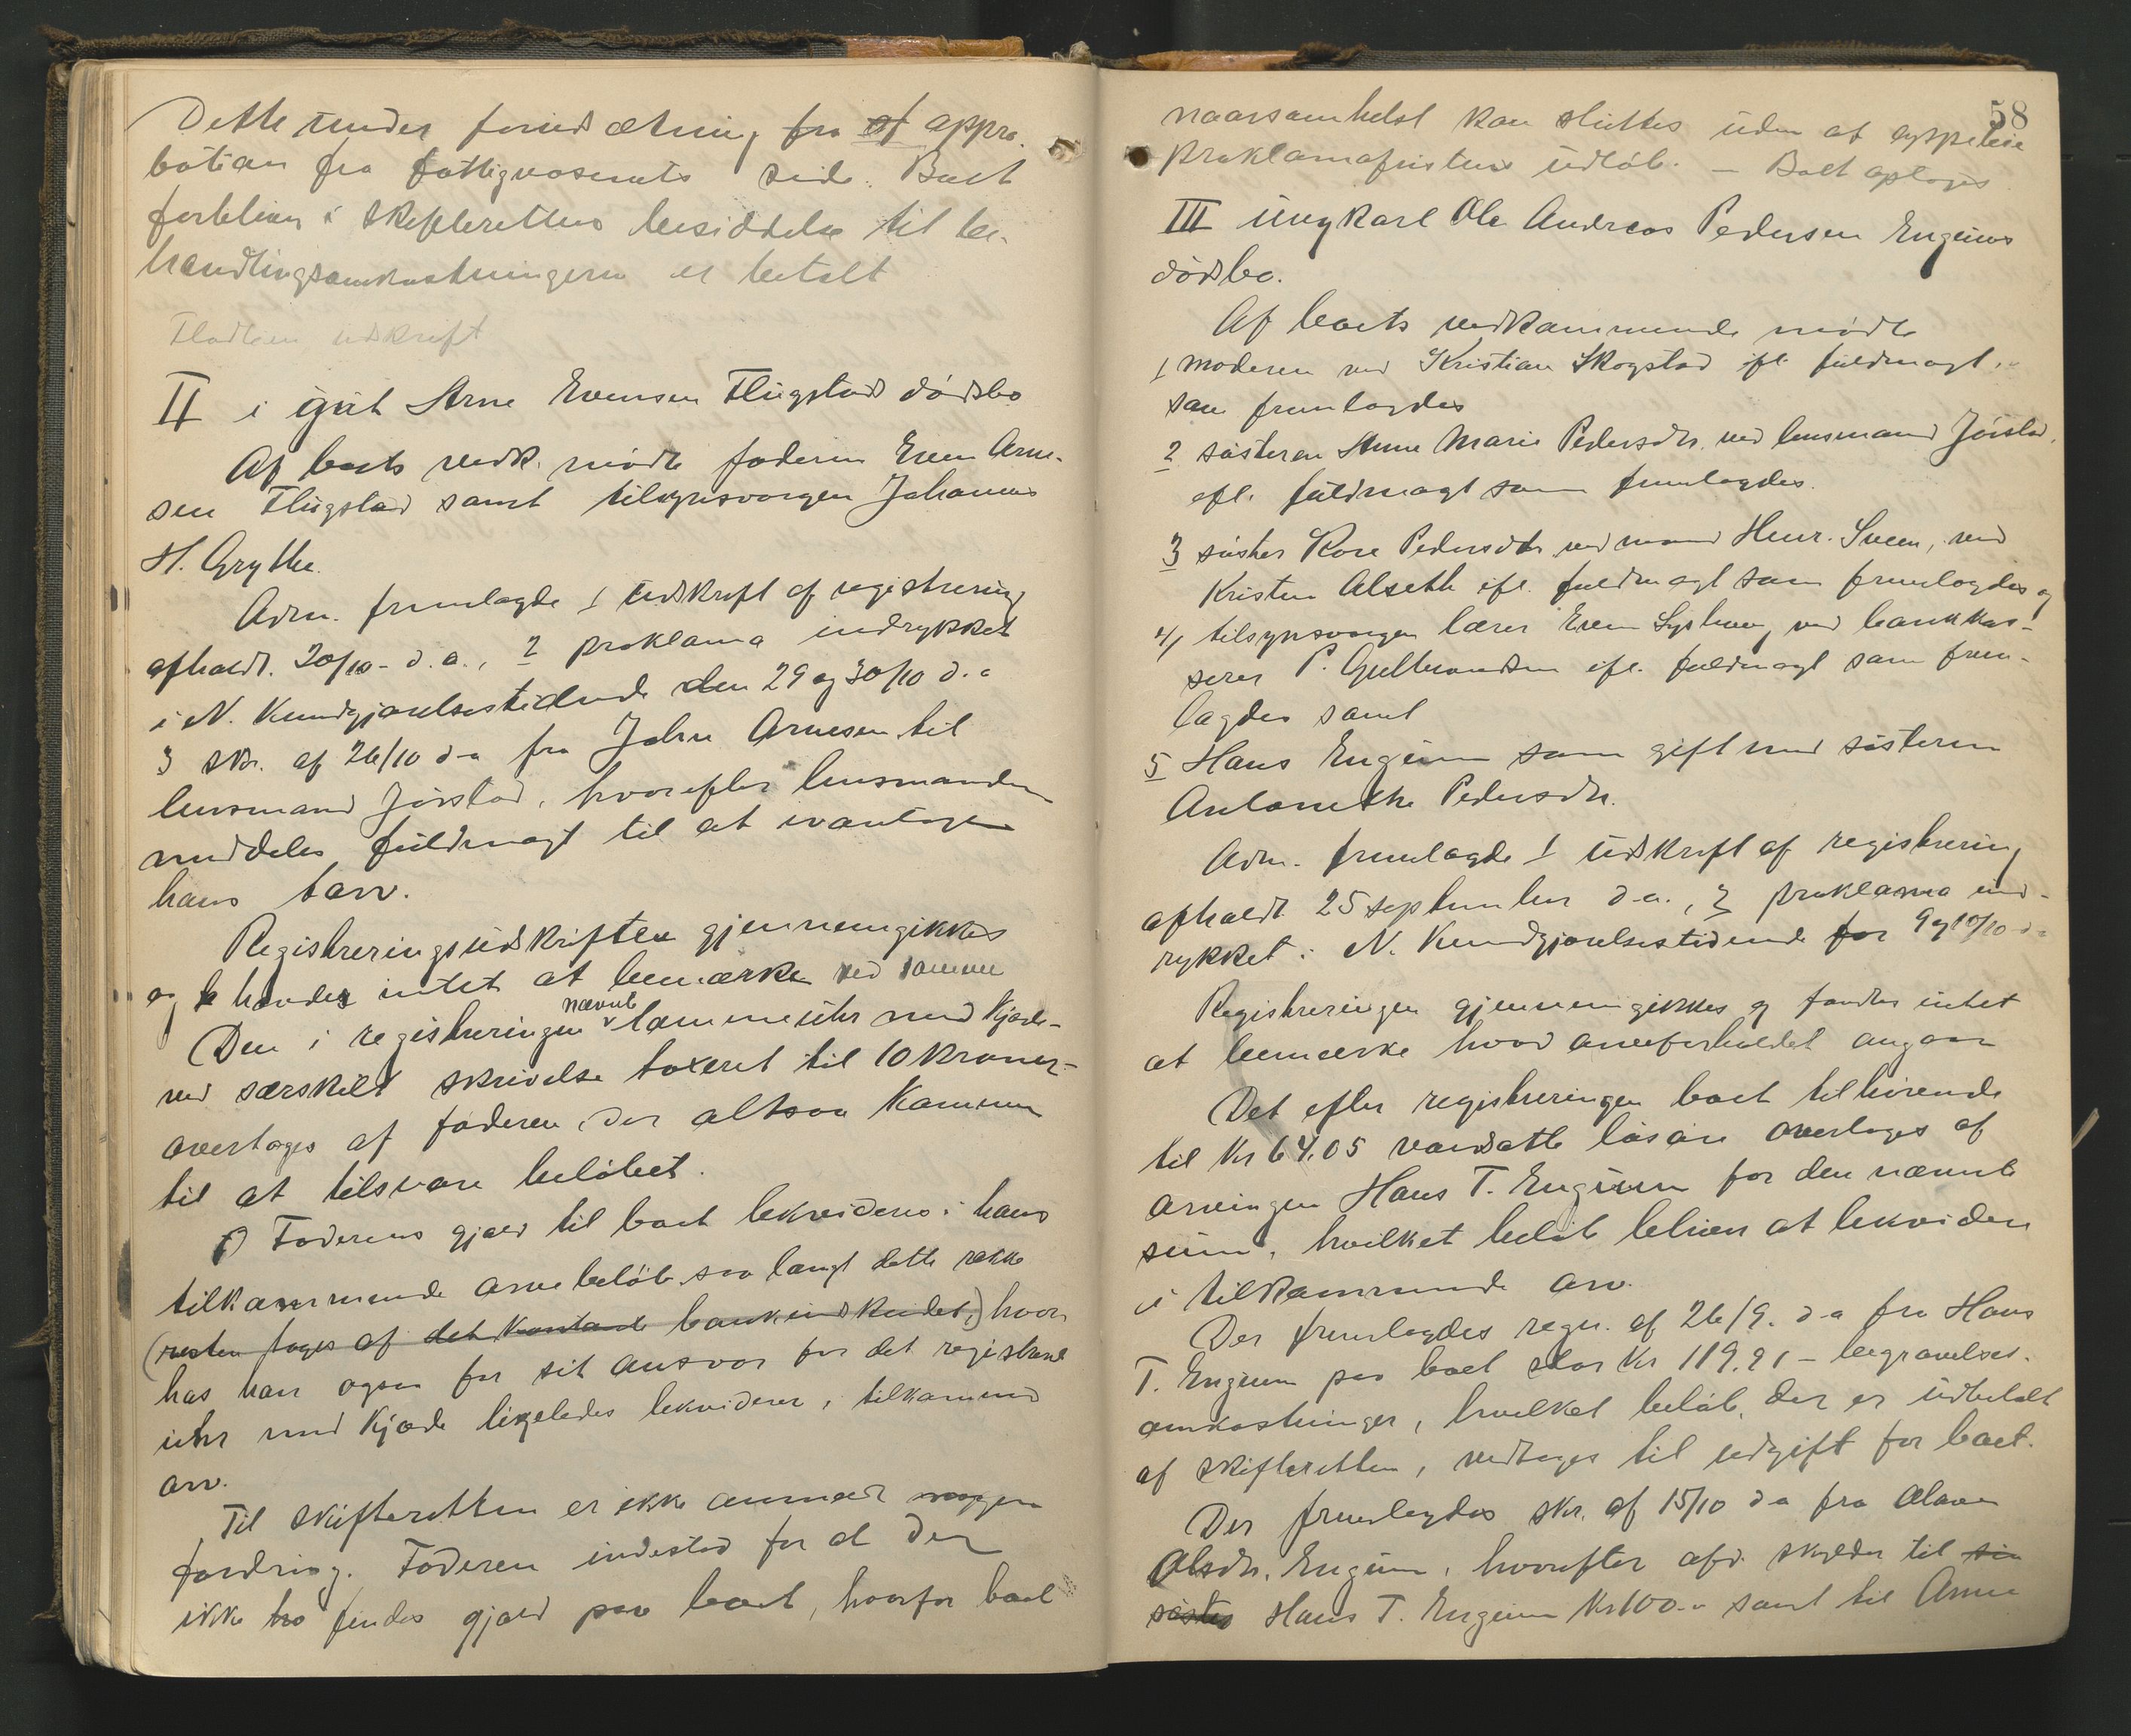 Dette under forudsætning fra af appro-
bation fra fattigvæsenets side. Boet
forbliver i skifterettens besiddelse til be-
handlingsomkostningerne er betalt
Fladten udskrift
II i ugift Arne Evensen Flugstad dødsbo
Af boets vedk. mødte faderen Even Arne-
sen Flugstad samt tilsynsvergen Johannes
H. Grytte.
Adm. fremlagde 1 udskrift af registrering
afholdt 20/10 - d.a., 2 proklama indrykket
i N. Kundgjørelsestidende den 29 og 30/10 d.a
3 skr. af 26/10 d-a fra Johan Arnesen til
lensmand Jørstad, hvorefter lensmanden
meddeles fuldmagt til at ivaretage
hans tarv.
Registreringsudskriften gjennemgikkes
og havdes intet at bemærke ved samme
Den i registreringen nævnte lommeuhr med kjæde -
ved særskilt skrivelse taxeret til 10 kroner -
overtages af faderen, der altsaa kommer
til at tilsvare beløbet.
Faderens gjæld til boet lekvideres i hans
tilkommende arvebeløb saa langt dette række
(resten tages af det kontante bankindskudet,) hvor-
hos han ogsaa for sit ansvar for det registrerede
uhr med kjæde ligeledes lekviderer i tilkommende
arv.
Til skifteretten er ikke anmeldt nogen
fordring. Faderen indestod for at der
ikke findes gjæld paa boet, hvorfor boet
58
naarsomhelst kan sluttes uden at oppebie
proklamafristens udløb. - Boet optoges
III ungkarl Ole Andreas Pedersen Engums
dødsbo.
Af boets vedkommende mødte
1 moderen ved Kristian Skogstad ifl. fuldmagt
som fremlagdes
2 søsteren Anne Marie Pedersdtr. ved lensmand Jørstad,
efl. fuldmagt som fremlagdes.
3 søster Kare Pedersdtr ved mand Henr. Sveen, ved
Kristen Alseth ifl. fuldmagt som fremlagdes og
4, tilsynsvergen lærer Even Lyshaug ved bankkas-
serer P. Gulbrandsen ifl. fuldmagt som frem-
lagdes samt
5 Hans Engum som gift med søsteren
Antonethe Pedersdtr.
Adm. fremlagde 1 udskrift af registrering
afholdt 25 september d.a., 2 proklama ind-
rykket i N. Kundgjørelsestidende for 9 og 10/10 d.a
Registreringen gjennemgikkes og fandtes intet
at bemærke hvad arveforholdet angaar
Det efter registreringen boet tilhørende
til Kr 64.05 værdsatte løsøre overtoges af
arvingen Hans T. Engum for den nævnte
sum, hvilket beløb bliver at lekvidere
i tilkommende arv.
Der fremlagdes regn. af 26/9. d-a fra Hans
T. Engum paa boet stor Kr 119.91 - begravelses-
omkostninger, hvilket beløb, der er udbetalt
af skifteretten, vedtages til udgift for boet.
Der fremlagdes skr. af 15/10 d a fra Olava
Olsdtr. Engum, hvorefter afd. skylder til sin
søster Hans T. Engum Kr 100.- samt til Anne